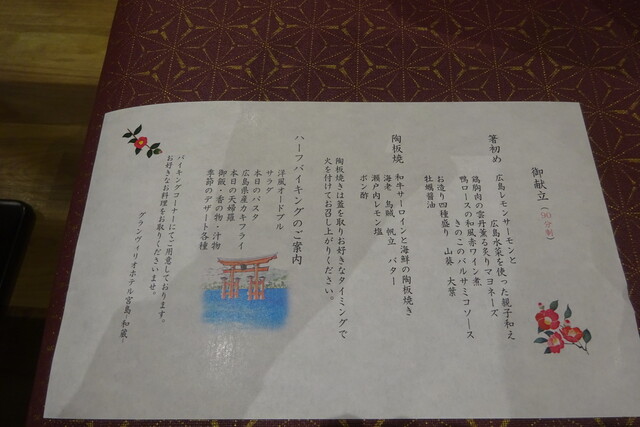 御献立（90分制）
箸初め
広島レモンサーモンと
広島水菜を使った親子和え
鶏胸肉の雲丹薫る炙りマヨネーズ
鴨ロースの和風赤ワイン煮
きのこのバルサミコソース
お造り四種盛り 山葵 大葉
牡蠣醤油
陶板焼
和牛サーロインと海鮮の陶板焼き
海老 烏賊 帆立 バター
瀬戸内レモン塩
ポン酢
陶板焼きは蓋を取りお好きなタイミングで
火を付けてお召し上がりください。
ハーフバイキングのご案内
洋風オードブル
サラダ
本日のパスタ
広島県産カキフライ
本日の天婦羅
御飯・香の物・汁物
季節のデザート各種
バイキングコーナーにてご用意しております。
お好きなお料理をお取りくださいませ。
グランヴィリオホテル宮島-和蔵-